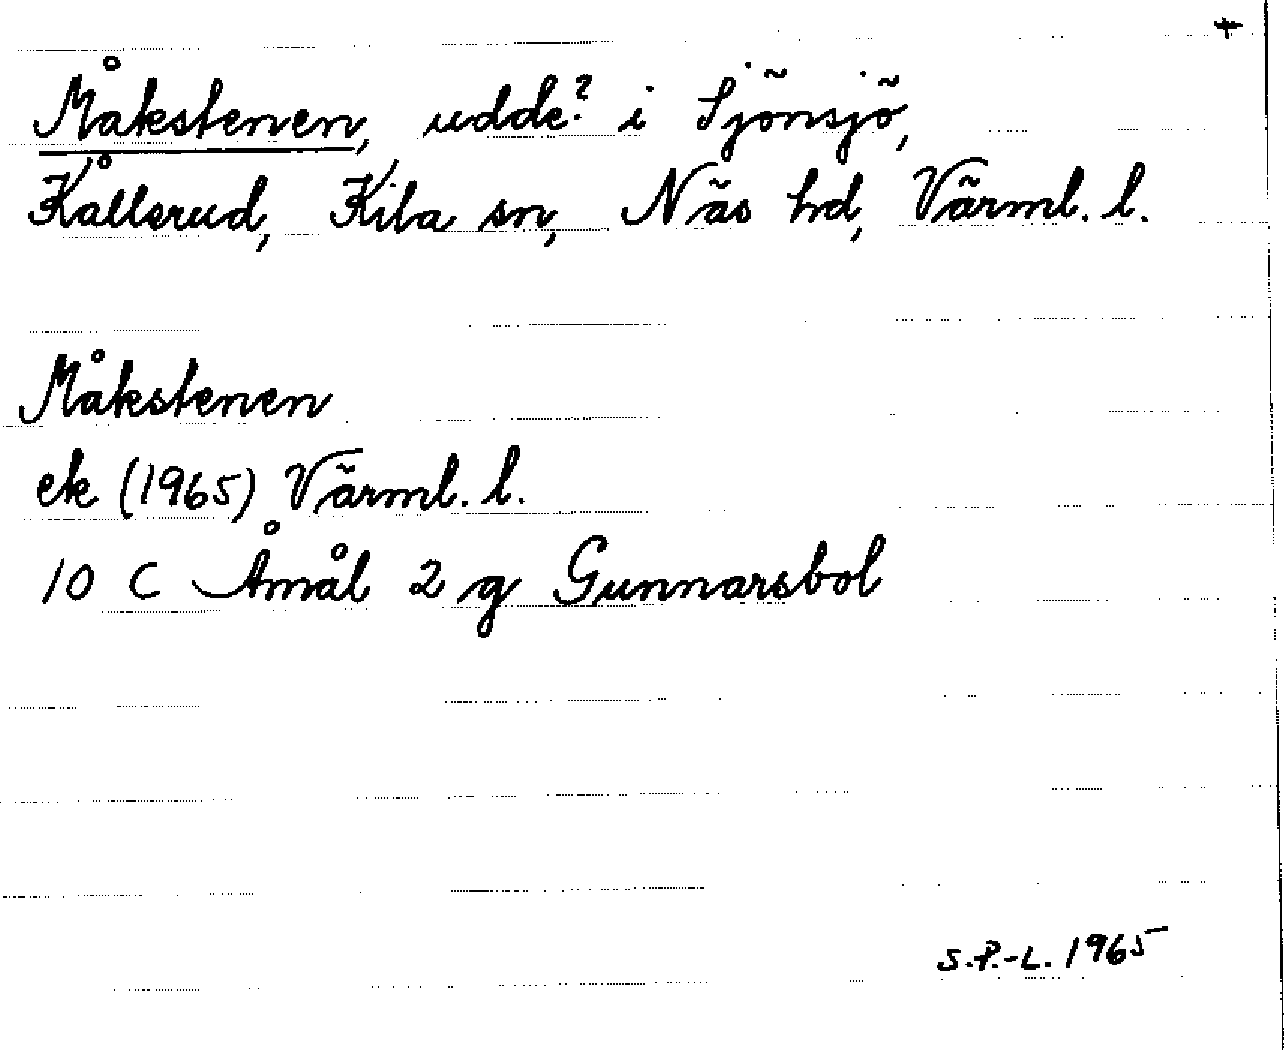 Måkstenen, udde? i Sjönsjö,
Kållerud, Kila sn, Näs hd, Värml. l.
Måkstenen
ek (1965) Värml. l.
10 C Åmål 2 g Gunnarsbol
S.P.-L. 1965